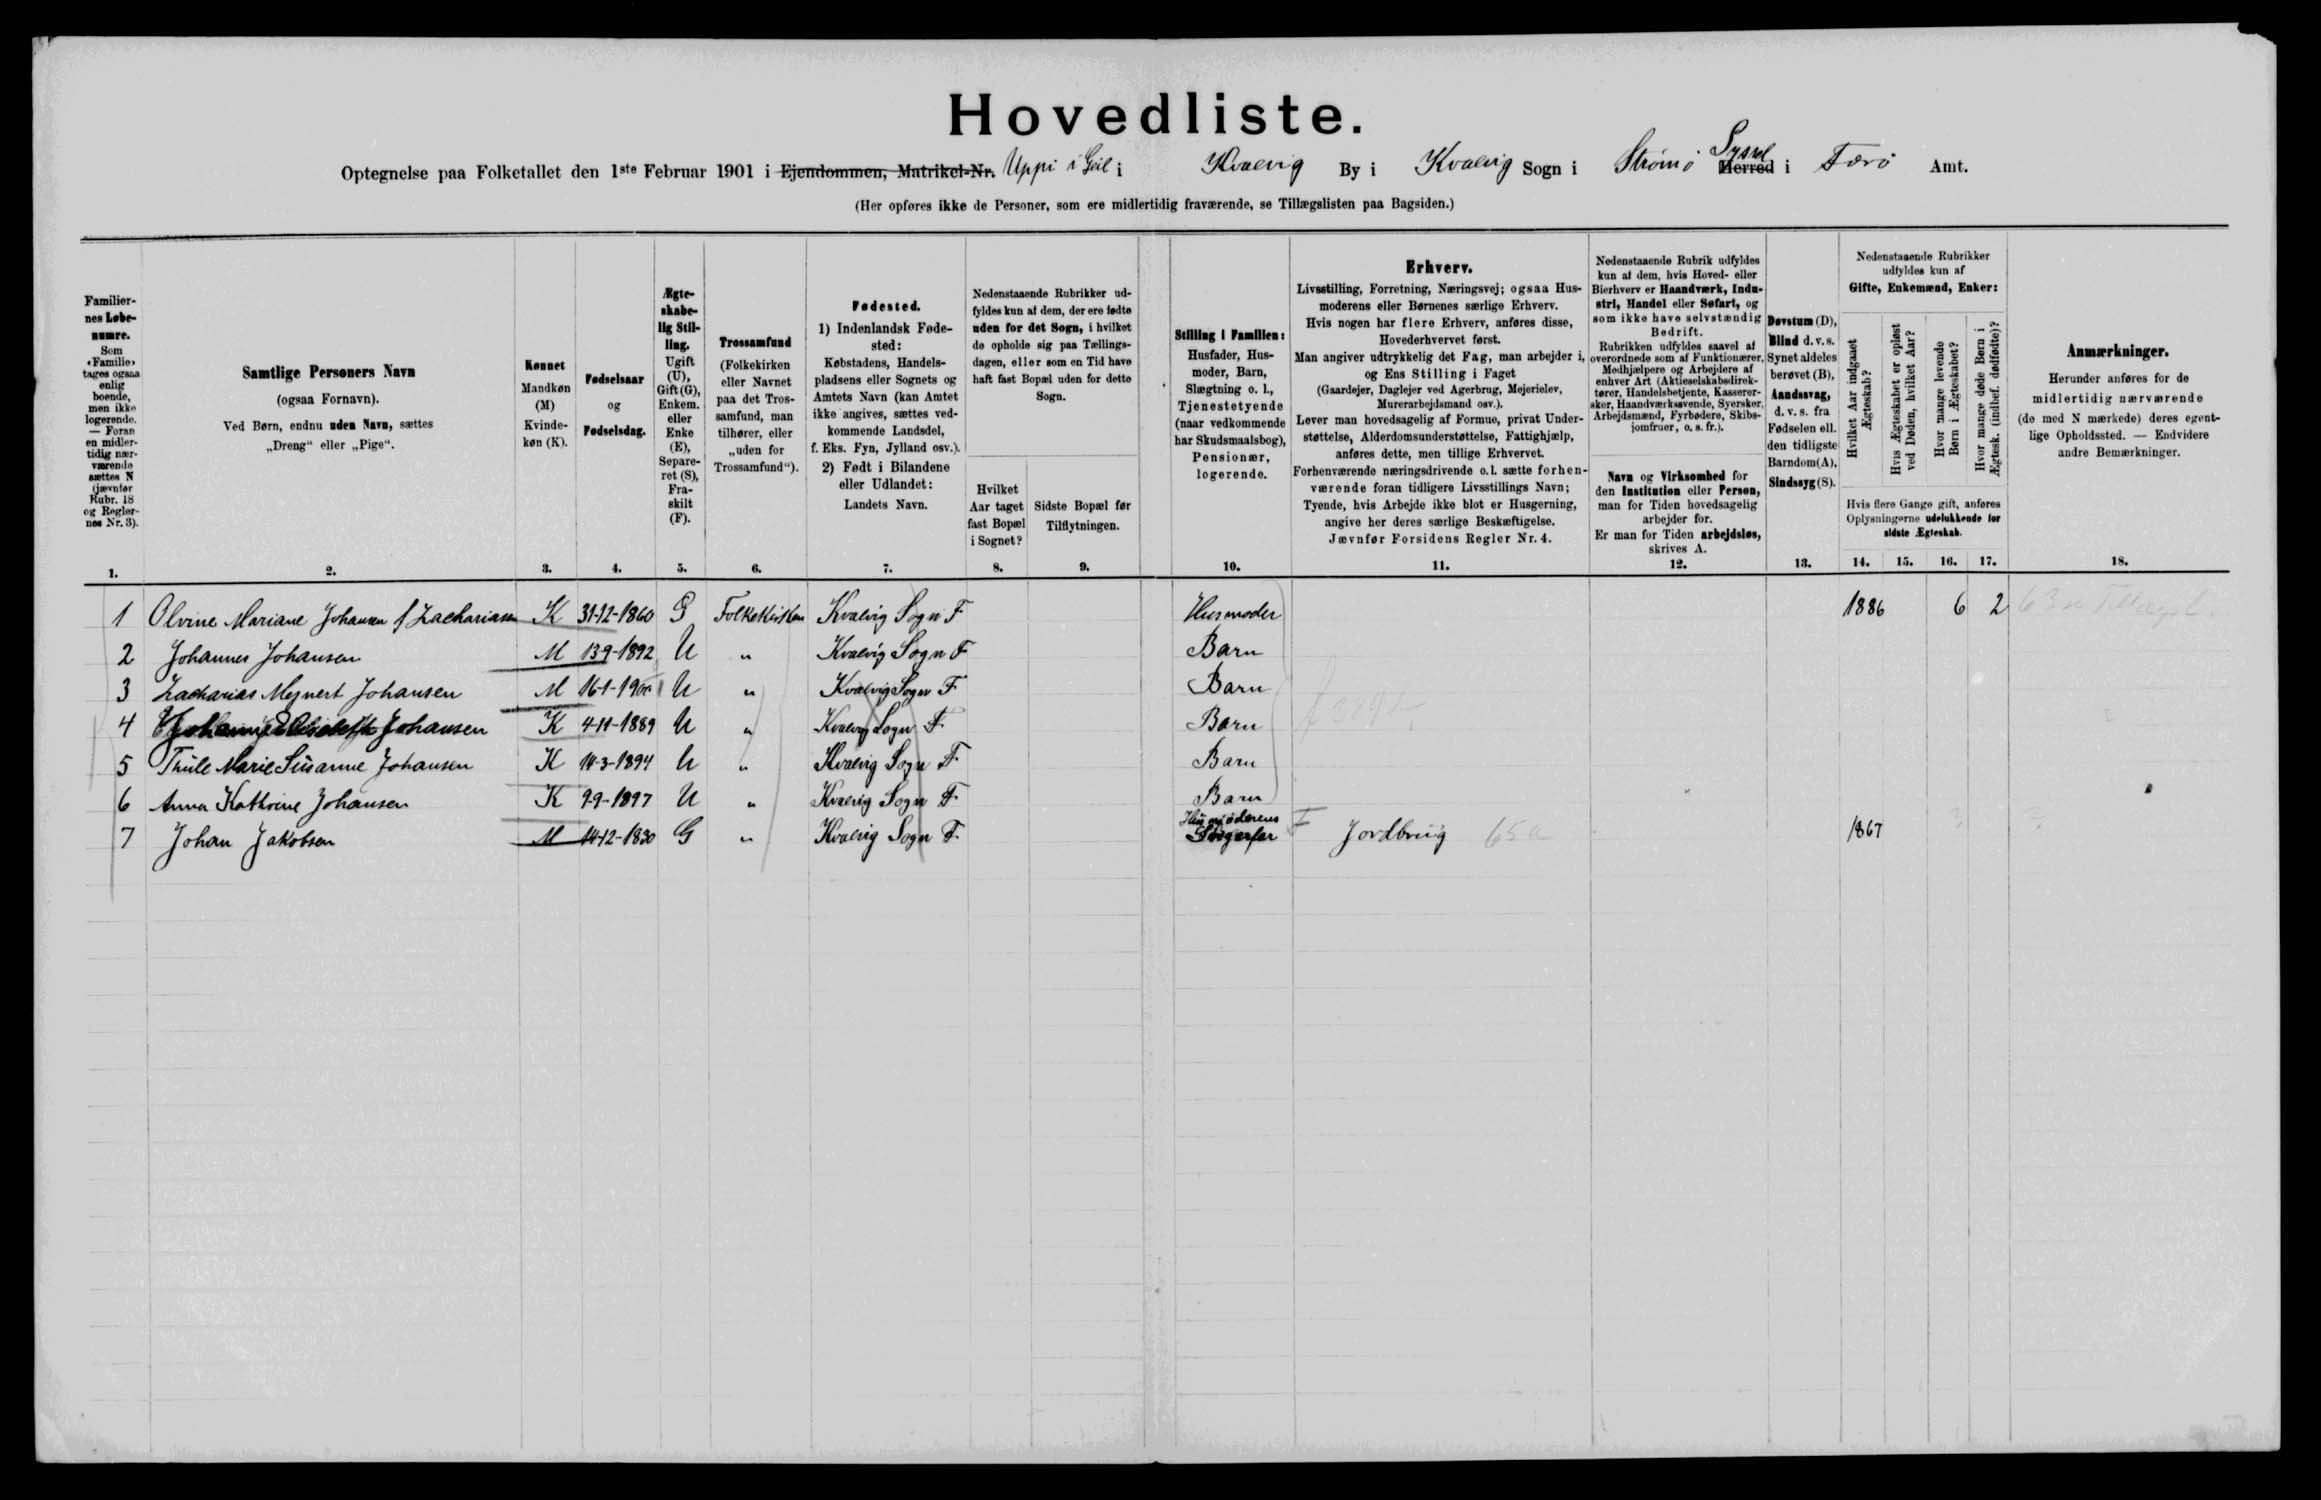 Hovedliste.
Optegnelse paa Folketallet den 1ste Februar 1901 i Ejendommen, Matrikel-Nr. Uppi i Geil i Kvalvig By i Kvalvig Sogn i Strömö Syssel Herred i Færö Amt.
(Her opføres ikke de Personer, som ere midlertidig fraværende, se Tillægslisten paa Bagsiden.)
Familier-
nes Løbe-
numre.
Som
«Familie»
tages ogsaa
enlig
boende,
men ikke
logerende.
— Foran
en midler-
tidig nær-
værende
sættes N
(jævnfør
Rubr. 18
og Regler-
nes Nr. 3).
1.
Samtlige Personers Navn
(ogsaa Fornavn).
Ved Børn, endnu uden Navn, sættes
„Dreng“ eller „Pige“.
2.
Kønnet
Mandkøn
(M)
Kvinde-
køn (K).
3.
Fødselsaar
og
Fødselsdag.
4.
Ægte-
skabe-
lig Stil-
ling.
Ugift
(U),
Gift (G),
Enkem.
eller
Enke
(E),
Separe-
ret (S),
Fra-
skilt
(F).
5.
Trossamfund
(Folkekirken
eller Navnet
paa det Tros-
samfund, man
tilhører, eller
„uden for
Trossamfund“).
6.
Fødested.
1) Indenlandsk Føde-
sted:
Købstadens, Handels-
pladsens eller Sognets og
Amtets Navn (kan Amtet
ikke angives, sættes ved-
kommende Landsdel,
f. Eks. Fyn, Jylland osv.).
2) Født i Bilandene
eller Udlandet:
Landets Navn.
7.
Nedenstaaende Rubrikker ud-
fyldes kun af dem, der ere fødte
uden for det Sogn, i hvilket
de opholde sig paa Tællings-
dagen, eller som en Tid have
haft fast Bopæl uden for dette
Sogn.
Hvilket
Aar taget
fast Bopæl
i Sognet?
8.
Sidste Bopæl før
Tilflytningen.
9.
Stilling i Familien:
Husfader, Hus-
moder, Barn,
Slægtning o. l.,
Tjenestetyende
(naar vedkommende
har Skudsmaalsbog),
Pensionær,
logerende.
10.
Erhverv.
Livsstilling, Forretning, Næringsvej; ogsaa Hus-
moderens eller Børnenes særlige Erhverv.
Hvis nogen har flere Erhverv, anføres disse,
Hovederhvervet først.
Man angiver udtrykkelig det Fag, man arbejder i,
og Ens Stilling i Faget
(Gaardejer, Daglejer ved Agerbrug, Mejerielev,
Murerarbejdsmand osv.).
Lever man hovedsagelig af Formue, privat Under-
støttelse, Alderdomsunderstøttelse, Fattighjælp,
anføres dette, men tillige Erhvervet.
Forhenværende næringsdrivende o. l. sætte forhen-
værende foran tidligere Livsstillings Navn;
Tyende, hvis Arbejde ikke blot er Husgerning,
angive her deres særlige Beskæftigelse.
Jævnfør Forsidens Regler Nr. 4.
11.
Nedenstaaende Rubrik udfyldes
kun af dem, hvis Hoved- eller
Bierhverv er Haandværk, Indu-
stri, Handel eller Søfart, og
som ikke have selvstændig
Bedrift.
Rubrikken udfyldes saavel af
overordnede som af Funktionærer,
Medhjælpere og Arbejdere af
enhver Art (Aktieselskabsdirek-
tører, Handelsbetjente, Kasserer-
sker, Haandværkssvende, Syersker,
Arbejdsmænd, Fyrbødere, Skibs-
jomfruer, o. s. fr.).
Navn og Virksomhed for
den Institution eller Person,
man for Tiden hovedsagelig
arbejder for.
Er man for Tiden arbejdsløs,
skrives A.
12.
Døvstum (D),
Blind d. v. s.
Synet aldeles
berøvet (B),
Aandssvag,
d. v. s. fra
Fødselen ell.
den tidligste
Barndom (A),
Sindssyg (S).
13.
Nedenstaaende Rubrikker
udfyldes kun af
Gifte, Enkemænd, Enker:
Hvilket Aar indgaaet
Ægteskab?
Hvis Ægteskabet er opløst
ved Døden, hvilket Aar?
Hvor mange levende
Børn i Ægteskabet?
Hvor mange døde Børn i
Ægtesk. (indbef. dødfødte)?
Hvis flere Gange gift, anføres
Oplysningerne udelukkende for
sidste Ægteskab.
14. 15. 16. 17.
Anmærkninger.
Herunder anføres for de
midlertidig nærværende
(de med N mærkede) deres egent-
lige Opholdssted. — Endvidere
andre Bemærkninger.
18.
1 Olvine Mariane Johansen f Zachariasen K 31-12-1860 G Folkekirken Kvalvig Sogn F Husmoder 1886 6 2
2 Johannes Johansen M 13-9-1892 U " Kvalvig Sogn F Barn
3 Zacharias Mejnert Johansen M 16-1-1900 U " Kvalvig Sogn F Barn
4 Elisabeth Johansen K 4-11-1889 U " Kvalvig Sogn F Barn
5 Thule Marie Susanne Johansen K 14-3-1894 U " Kvalvig Sogn F Barn
6 Anna Kathrine Johansen K 9-9-1897 U " Kvalvig Sogn F Barn
7 Johan Jakobsen M 14-12-1830 G " Kvalvig Sogn F Husmoderens Svigerfar F Jordbrug 65a 1867